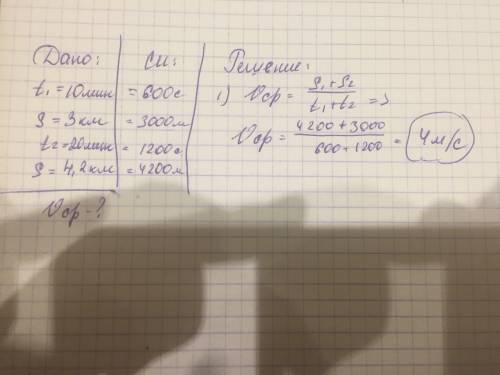 Дано:
t₁ = 10мин
S = 3 км
t₂ = 20мин
S = 4,2км
Vср - ?
СИ:
= 600с
= 3000м
= 1200с
= 4200м
Решение:
1) Vср = S₁+S₂ / t₁+t₂ =>
Vср = 4200+3000 / 600+1200 = 4м/с